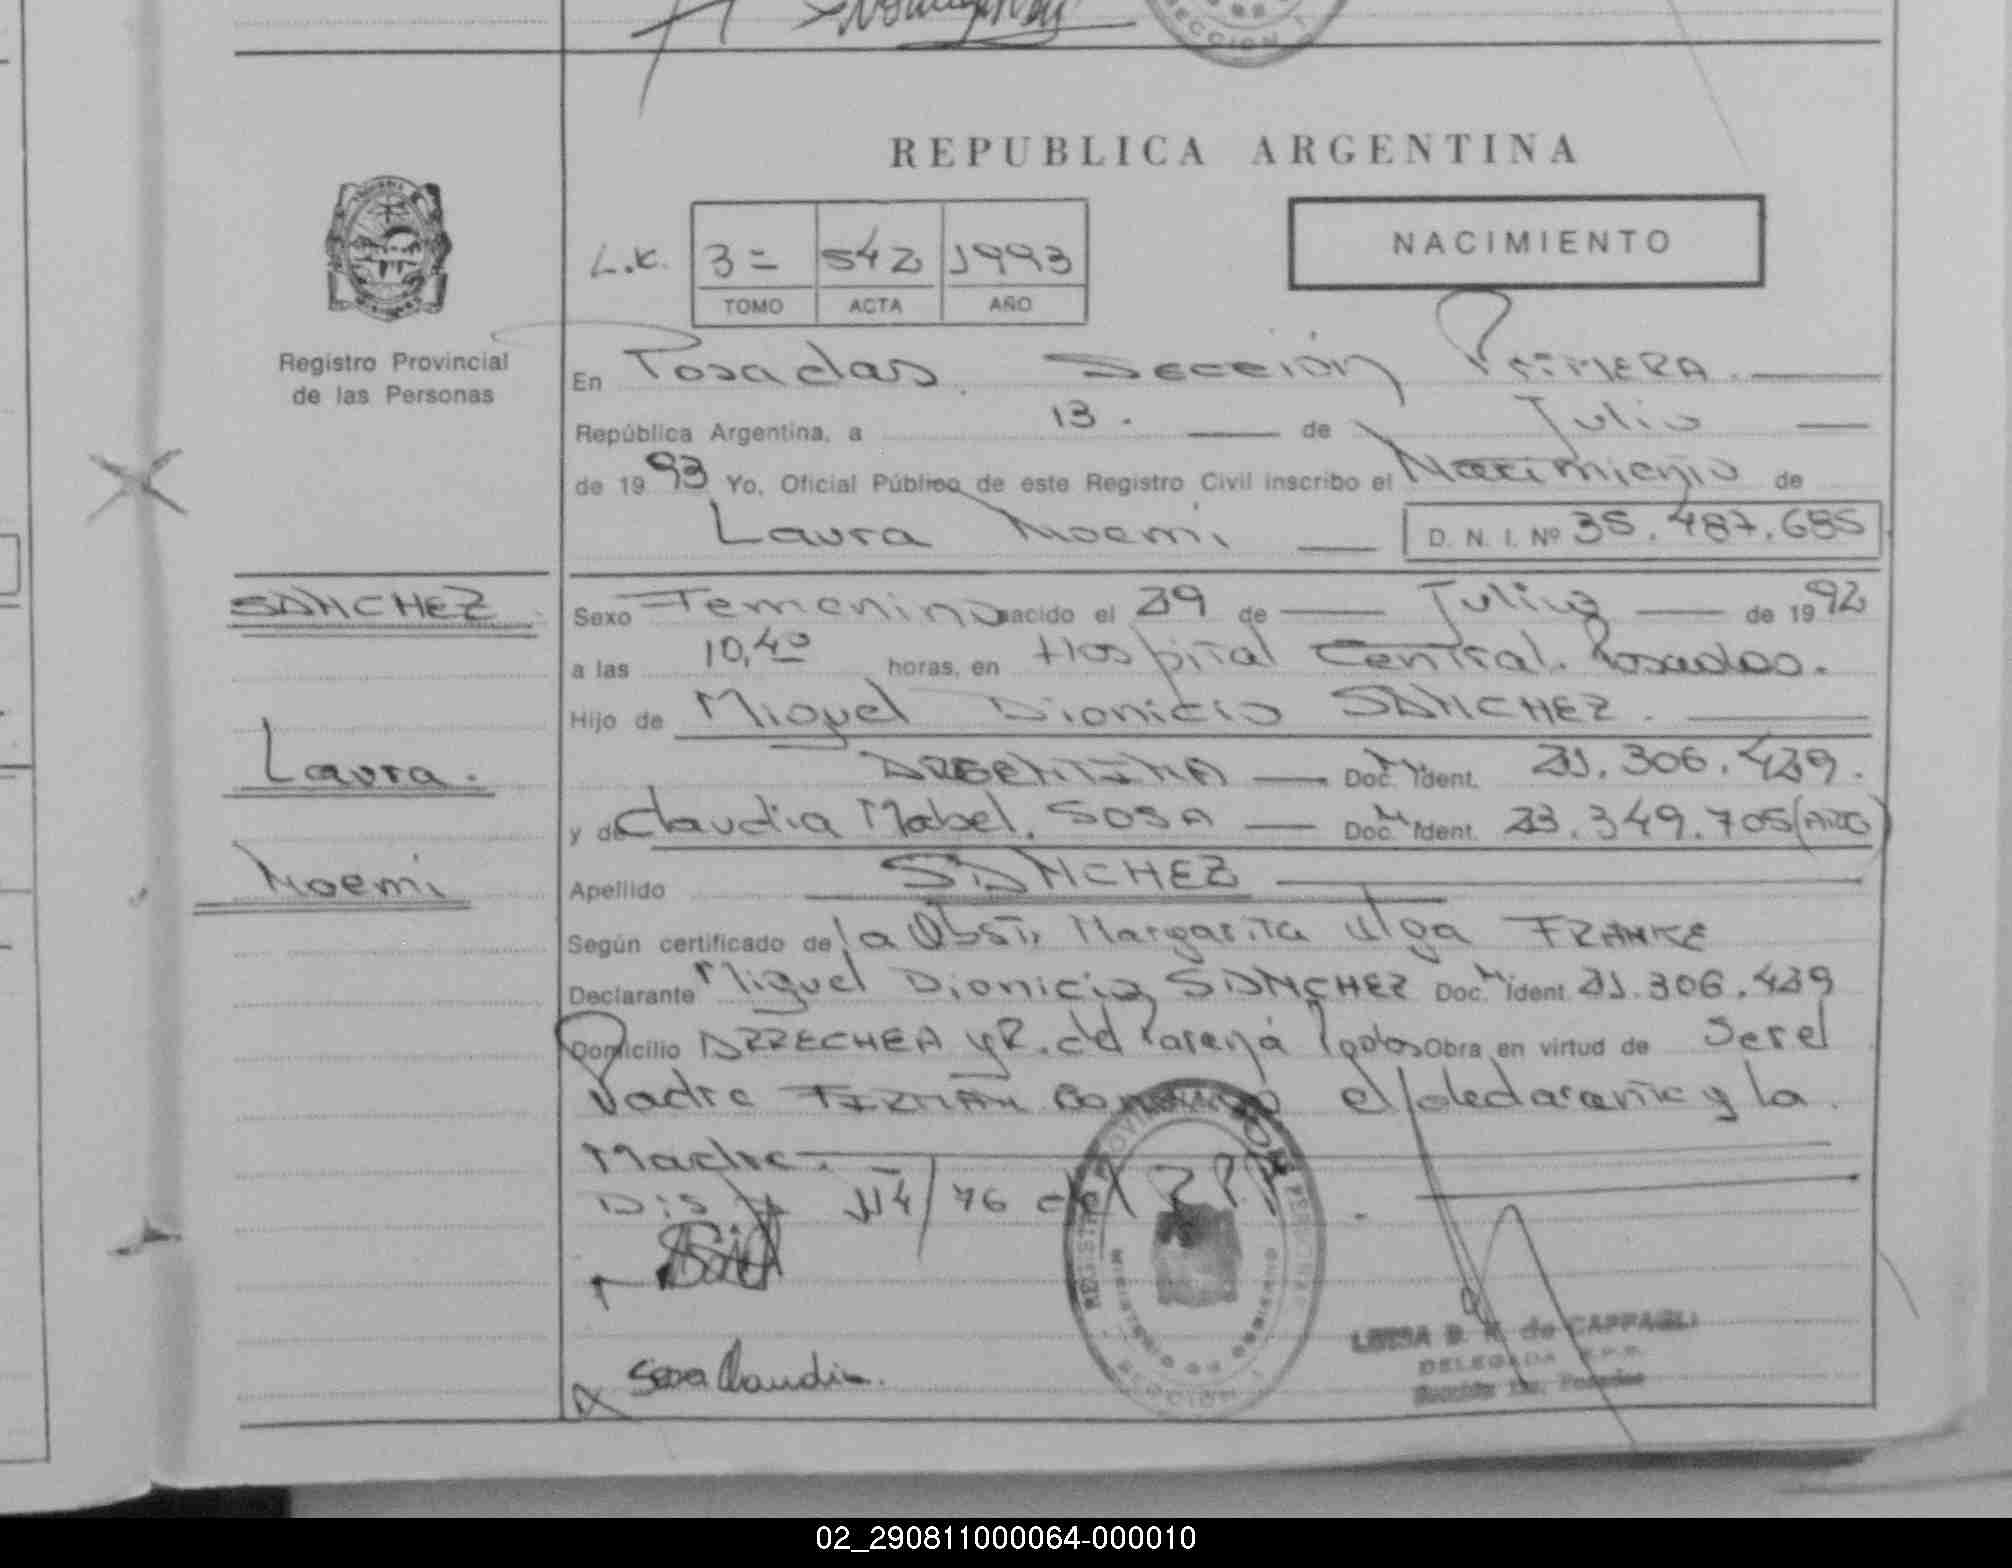 SECCION 1
REPUBLICA ARGENTINA
NACIMIENTO
L.K. 3= 542 1993
TOMO ACTA AÑO
Registro Provincial
de las Personas
En Posadas. Sección PRIMERA.
República Argentina, a 13. de Julio
de 1993 Yo, Oficial Público de este Registro Civil inscribo el Nacimiento de
Laura Noemi D. N. I. Nº 35.487.685
SANCHEZ
Laura.
Noemi
Sexo Femenino nacido el 29 de Julio de 1992
a las 10,40 horas, en Hospital Central. Posadas.
Hijo de Miguel Dionicio SANCHEZ.
ARGENTINA Doc. M. Ident. 21.306.429.
y de Claudia Mabel. SOSA Doc. M. Ident. 23.349.705 (ARG)
Apellido SANCHEZ
Según certificado de la Obst. Margarita Olga FRANKE
Declarante Miguel Dionicio SANCHEZ Doc. M. Ident. 21.306.429
Domicilio ARRECHEA y R. del Paraná Pdas Obra en virtud de Ser el
Padre FIRMAN Conmigo el declarante y la
Madre.
Dis. 114/76 del R.P.P.
Sosa Claudia.
REGISTRO PROVINCIAL DE LAS PERSONAS
MINISTERIO DE GOBIERNO
SECCION 1
LUISA B. de CAPPAGLI
DELEGADA R.P.P.
Sección 1ra. Posadas
02_290811000064-000010